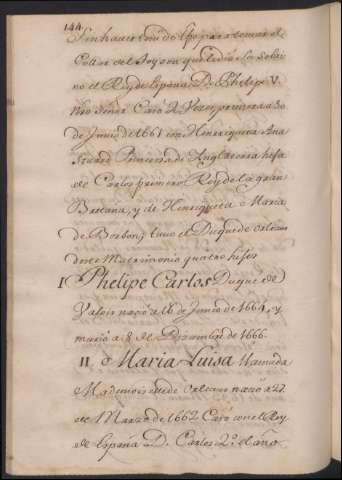 144
Sin haver venido expo para tomar el
Collar del Toyson que le dio su sobri
no el Rey de España D. Phelipe V.
nro Señor Casó 2 Vezes, primera a 30
de Junio de 1661 con Henriqueta Ana
Stuard Princesa de Anglaterra hija
de Carlos primero Rey de la gran
Bretana, y de Henriqueta Maria
de Borbon; tuvo el Duque de Orleans
deste Matrimonio quatro hijos
I Phelipe Carlos Duque de
Valois nacio a 16 de Junio de 1664, y
murio a 8 de Dizembre de 1666.
II Maria Luisa llamada
Mademoiselle de Orleans nacio a 27
de Marzo de 1662 Casó con el Rey
de España D. Carlos 2º el año